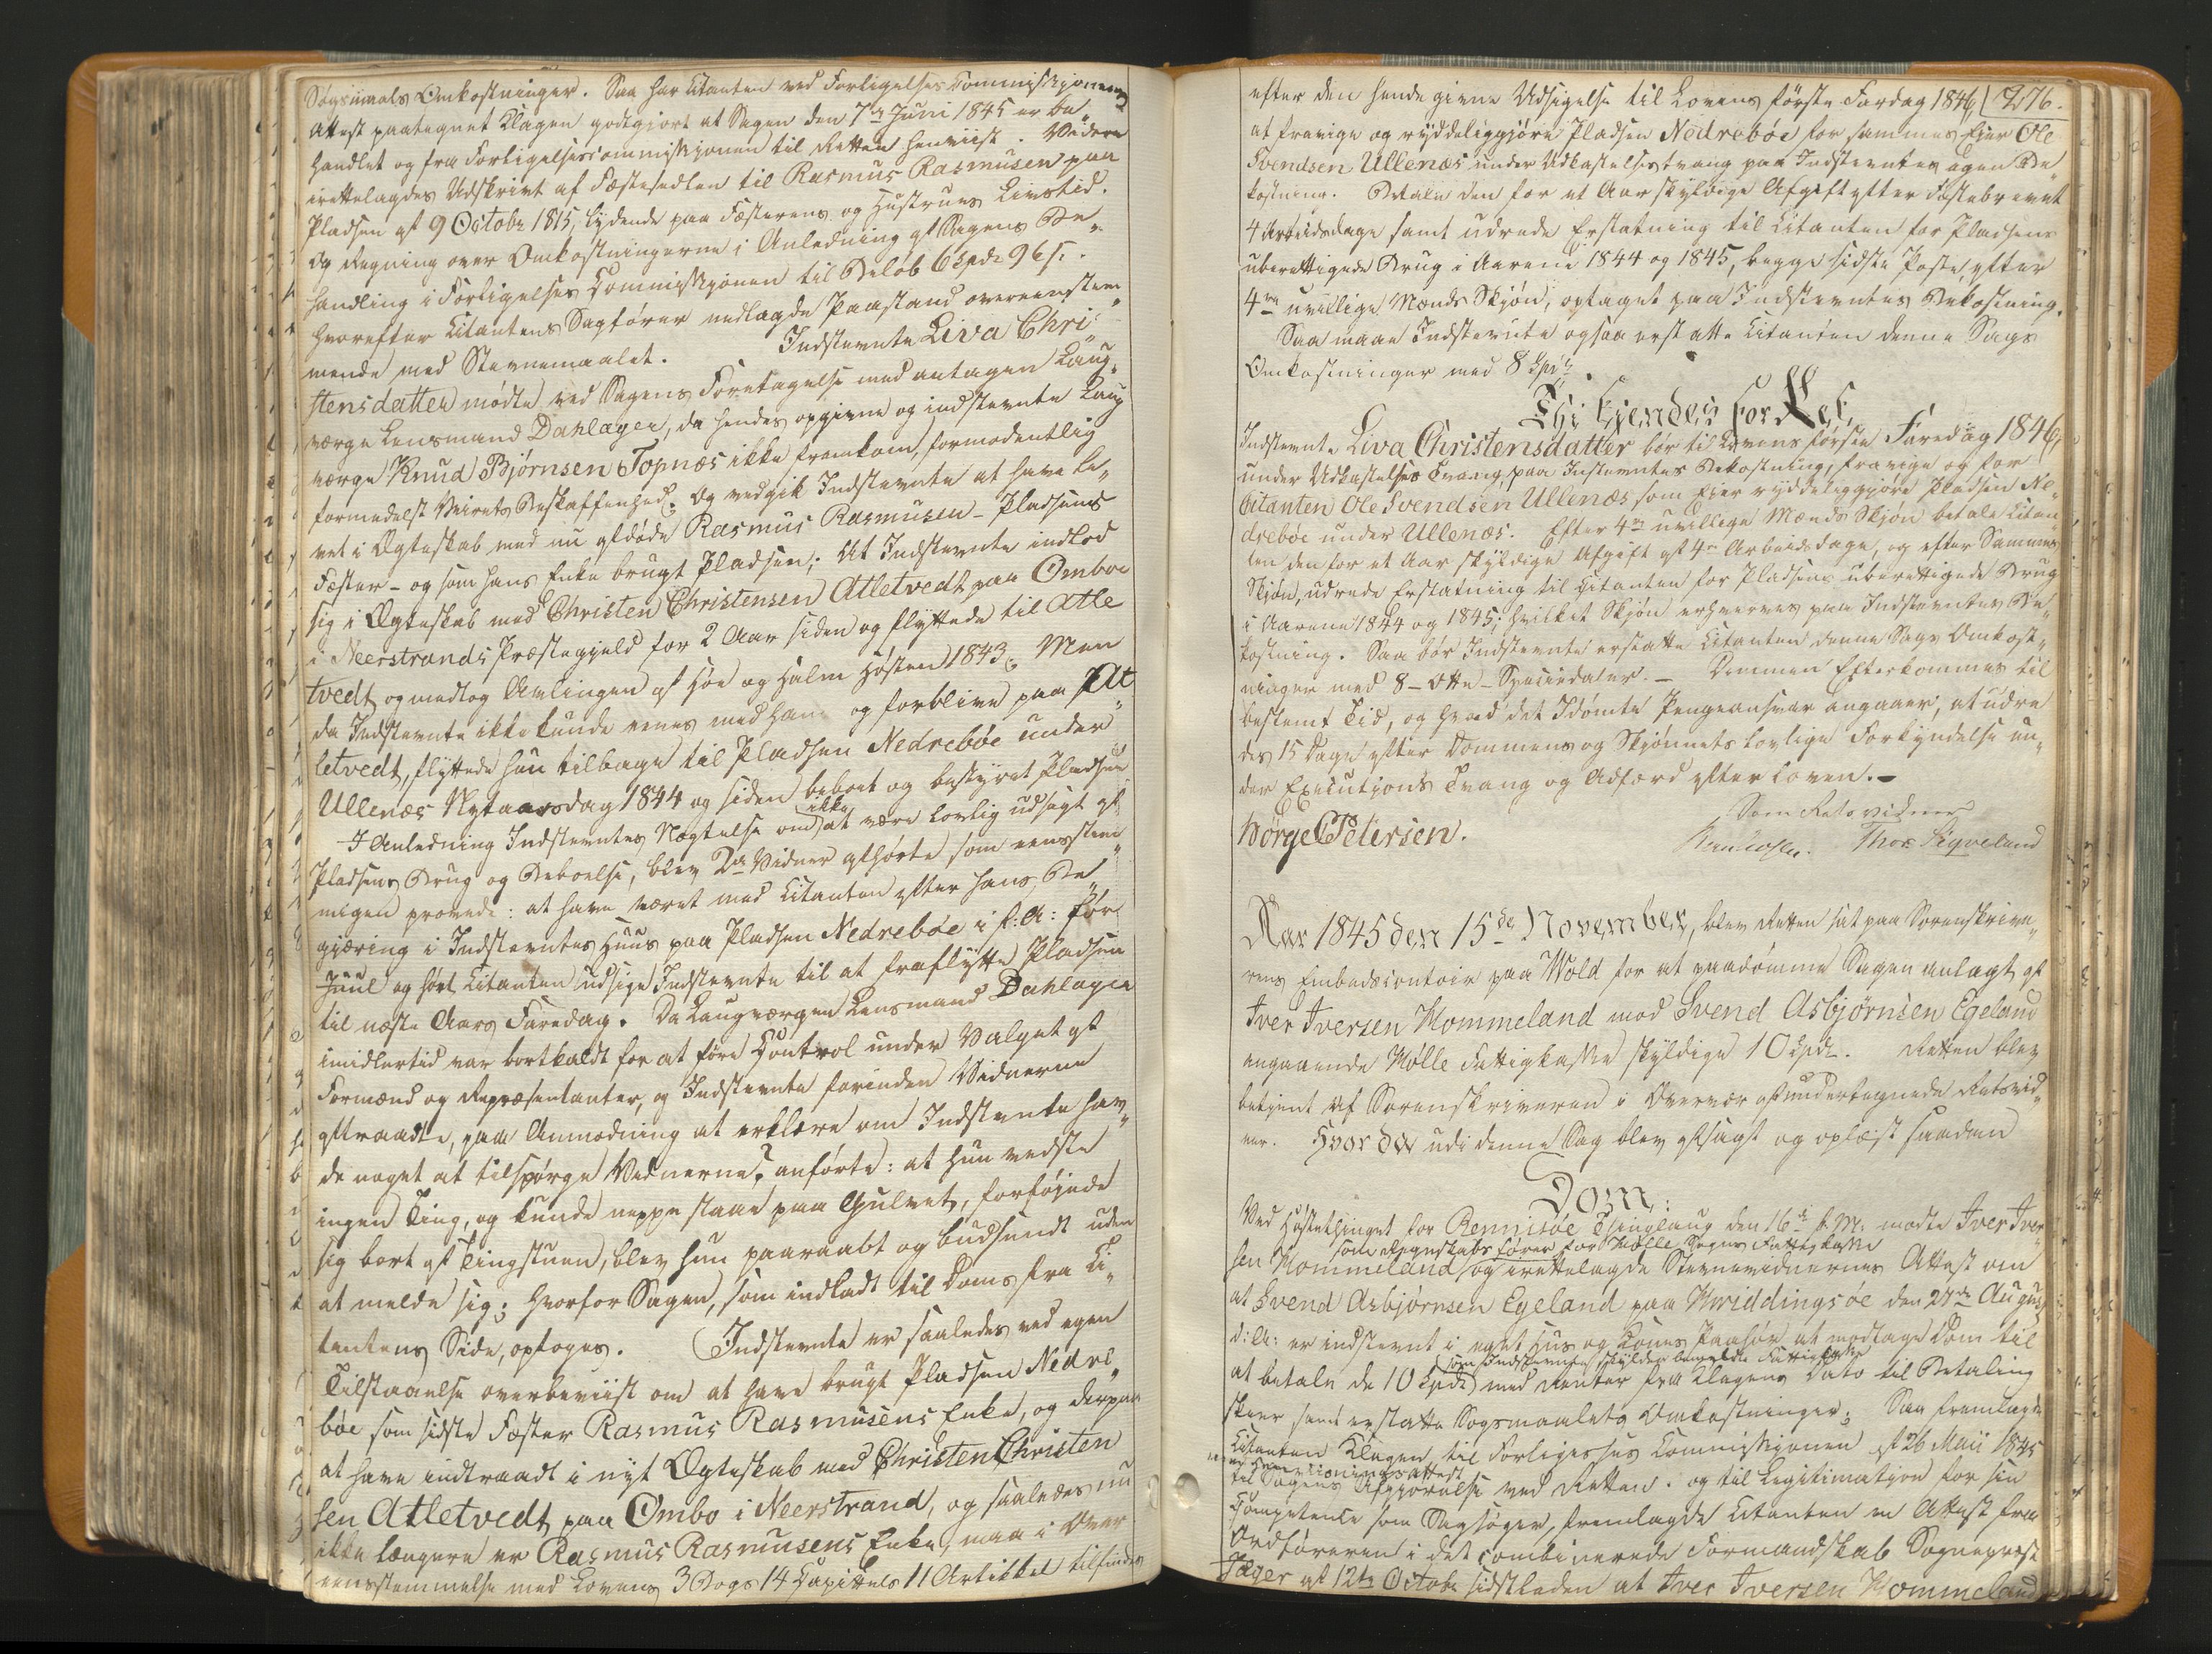 Søgsmaals Omkostninger. Saa har Citanten ved Forligelses Commissjonens
Attest paategnet Klagen godtgjort at Sagen den 7de Juni 1845 er be„
handlet og fra Forligelsescommissjonen til Retten henviist. Videre
irettelagdes Udskrivt af Fæstesedlen til Rasmus Rasmusen paa
Pladsen af 9 Octobr 1815, lydende paa Fæsterens og Hustrues Livstid.
Og Regning over Omkostningerne i Anledning af Sagens Be„
handling i Forligelses Commissjonen til Beløb 6 Spdr 96 s.
Hvorefter Citantens Sagfører nedlagde Paastand overeenstem„
mende med Stevnemaalet. Indstevnte Liva Chri„
stensdatter mødte ved Sagens Foretagelse med antagen Laug„
værge Lensmand Dahlager, da hendes opgivne og indstevnte Laug
værge Knud Bjørnsen Topnæs ikke fremkom, formodentlig
formedelst Veirets Beskaffenhed. Og vedgik Indstevnte at have le„
vet i Ægteskab med nu afdøde Rasmus Rasmusen – Pladsens
Fæster – og som hans Enke brugt Pladsen; At Indstevnte indlod
sig i Ægteskab med Christen Christensen Atletvedt paa Omboe
i Neerstrands Præstegjeld for 2 Aar siden og flyttede til Atle
tvedt, og medtog Avlingen af Høe og Halm Høsten 1843. Men
da Indstevnte ikke kunde enes med ham og forblive paa At„
letvedt, flyttede hun tilbage til Pladsen Nedrebøe under
Ullenæs Nytaarsdag 1844 og siden beboet og bestyret Pladsen
I Anledning Indstevntes Nægtelse om ikke at være lovlig udsagt af
Pladsens Brug og Beboelse, blev 2de Vidner afhørte som eensstem„
migen provede: at have været med Citanten efter hans Be„
gjæring i Indstevntes Huus paa Pladsen Nedrebøe i f: A: før
Juul og hørt Citanten udsige Indstevnte til at fraflytte Pladsen
til næste Aars Faredag. Da Laugværgen Lensmand Dahlager
imidlertid var bortkaldt for at føre Control under Valget af
Formænd og Repræsentanter, og Indstevnte forinden Vidnerne
aftraadte, paa Anmodning at erklære om Indstevnte hav„
de noget at tilspørge Vidnerne? anførte: at hun vedste
ingen Ting, og kunde neppe staae paa Gulvet, forføjede
sig bort af Tingstuen, blev hun paaraabt og budsendt uden
at melde sig; hvorfor Sagen, som indladt til Doms fra Ci„
tantens Side, optoges. Indstevnte er saaledes ved egen
Tilstaaelse overbeviist om at have brugt Pladsen Nedre„
bøe som sidste Fæster Rasmus Rasmusens Enke, og derpaa
at have indtraadt i nyt Ægteskab med Christen Christen
sen Atletvedt paa Ombo i Neerstrand, og saaledes nu
ikke længere er Rasmus Rasmusens Enke, maa i Over
eensstemmelse med Lovens 3 Bogs 14 Capittels 11 Artikkel tilfindes
276.
efter den hende givne Udsigelse til Lovens første Fardag 1846,
at fravige og ryddeliggjøre Pladsen Nedrebøe for sammes Eier Ole
Svendsen Ullenæs under Udkastelsestvang paa Indstevntes egen Be„
kostning. Betale den for et Aar skyldige Afgift efter Fæstebrevet
4 Arbeidsdage samt udrede Erstatning til Citanten for Pladsens
uberettigede Brug i Aarene 1844 og 1845, begge sidste Poste, efter
4re uvillige Mænds Skjøn, optaget paa Indstevntes Bekostning.
Saa maae Indstevnte ogsaa erstatte Citanten denne Sags
Omkostninger med 8 Spdr.
Thi kjendes for Ret
Indstevnte Liva Christensdatter bør til Lovens første Faredag 1846,
under Udkastelses Tvang, paa Instevntes Bekostning, fravige og for
Citanten Ole Svendsen Ullenæs, som Eier ryddeliggjøre Pladsen Ne„
drebøe under Ullenæs. Efter 4re uvillige Mænds Skjøn betale Citan„
ten den for et Aar skyldige Afgift af 4re Arbeidsdage, og efter Sammes
Skjøn, udrede Erstatning til Citanten for Pladsens uberettigede Brug
i Aarene 1844 og 1845; hvilket Skjøn erhverves paa Indstevntes Be„
kostning. Saa bør Indstevnte erstatte Citanten denne Sags Omkost„
ninger med 8 – Otte – Speciedaler. – Dommen Efterkommes til
bestemt Tid, og hvad det Idømte Pengeansvar angaaer, at udre
des 15 Dage efter Dommens og Skjønnets lovlige Forkyndelse un„
der Executjons Tvang og Adfærd efter Loven. –
Som Retsvidner
Børge C Petersen. Thor Sigveland
Aar 1845 den 15de November, blev Retten sat paa Sorenskrive„
rens Embedscontoir paa Wold for at paadømme Sagen anlagt af
Iver Iversen Hommeland mod Svend Asbjørnsen Egeland
angaaende Hølle Fattigkasse skyldige 10 Spdr. Retten blev
betjent af Sorenskriveren i Overvær af undertegnede Retsvid„
ner. Hvor da udi denne Sag blev afsagt og oplæst saadan
Dom:
Ved Høstethinget for Rennisøe Thinglaug den 16de f. M. mødte Iver Iver„
som Regnskabsfører for Hølle Sogns Fattigkasse
sen Hommeland og irettelagde Stevnevidnernes Attest om
at Svend Asbjørnsen Egeland paa Hwiddingsøe den 27de August
d: A: er indstevnt i eget Hus og Kones Paahør at modtage Dom til
som Indstevnte skylder bemeldte Fattigkasse
at betale de 10 Spdr med Renter fra Klagens Dato til Betaling
skeer samt erstatte Søgsmaalets Omkostninger. Saa fremlagde
Citanten Klagen til Forligelses Commissjonen af 26 Maii 1845
med Henvisningsattest
til Sagens Afgjørelse ved Retten. og til Legitimatjon for sin
Competence som Sagsøger, fremlagde Citanten en Attest fra
Ordføreren i det combinerede Formandskab Sognepræst
Jæger af 12te Octobr sidstleden at Iver Iversen Hommeland